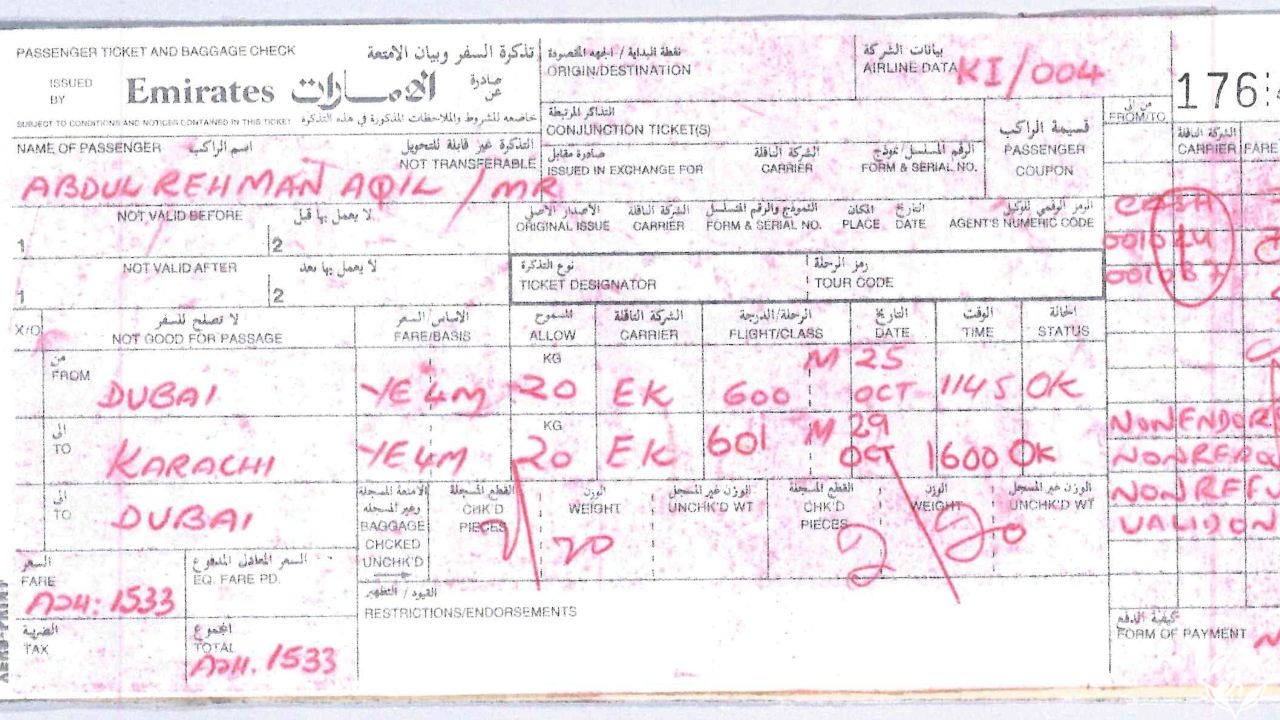 PASSENGER TICKET AND BAGGAGE CHECK تذكرة السفر وبيان الامتعة
نقطة البداية / الجهه المقصودة
ORIGIN/DESTINATION
بيانات الشركة
AIRLINE DATA KI/004
ISSUED BY Emirates الامارات صادرة عن
176
SUBJECT TO CONDITIONS AND NOTICES CONTAINED IN THIS TICKET خاضعه للشروط والملاحظات المذكورة في هذه التذكرة
التذاكر المرتبطة
CONJUNCTION TICKET(S)
من الى
FROM/TO
NAME OF PASSENGER اسم الراكب التذكرة غير قابلة للتحويل
NOT TRANSFERABLE
صادرة مقابل الشركة الناقلة الرقم المسلسل / نموذج
ISSUED IN EXCHANGE FOR CARRIER FORM & SERIAL NO.
قسيمة الراكب
PASSENGER COUPON
الشركة الناقلة
CARRIER FARE
ABDUL REHMAN AQIL / MR
NOT VALID BEFORE لا يعمل بها قبل
1 2
الأصدار الأصلي الشركة الناقلة النموذج والرقم المسلسل المكان التاريخ الرمز الرقمي للوكيل
ORIGINAL ISSUE CARRIER FORM & SERIAL NO. PLACE DATE AGENT'S NUMERIC CODE
NOT VALID AFTER لا يعمل بها بعد
1 2
نوع التذكرة رمز الرحلة
TICKET DESIGNATOR TOUR CODE
X/O لا تصلح للسفر الاساس/السعر المسموح الشركة الناقلة الرحلة/الدرجة التاريخ الوقت الحالة
NOT GOOD FOR PASSAGE FARE/BASIS ALLOW CARRIER FLIGHT/CLASS DATE TIME STATUS
من
FROM DUBAI YE4M KG 20 EK 600 M 25 OCT 1145 OK
الى
TO KARACHI YE4M KG 20 EK 601 M 29 OCT 1600 OK
NONREF
الى
TO DUBAI
VALID ON
الامتعة المسجلة وغير المسجله القطع المسجلة الوزن الوزن غير المسجل القطع المسجلة الوزن الوزن غير المسجل
BAGGAGE CHCKED UNCHK'D CHK'D PIECES WEIGHT UNCHK'D WT CHK'D PIECES WEIGHT UNCHK'D WT
20 2 20
السعر السعر المعادل المدفوع
FARE EQ. FARE PD.
1533
القيود / التظهير
RESTRICTIONS/ENDORSEMENTS
الضريبة المجموع
TAX TOTAL
1533
كيفية الدفع
FORM OF PAYMENT